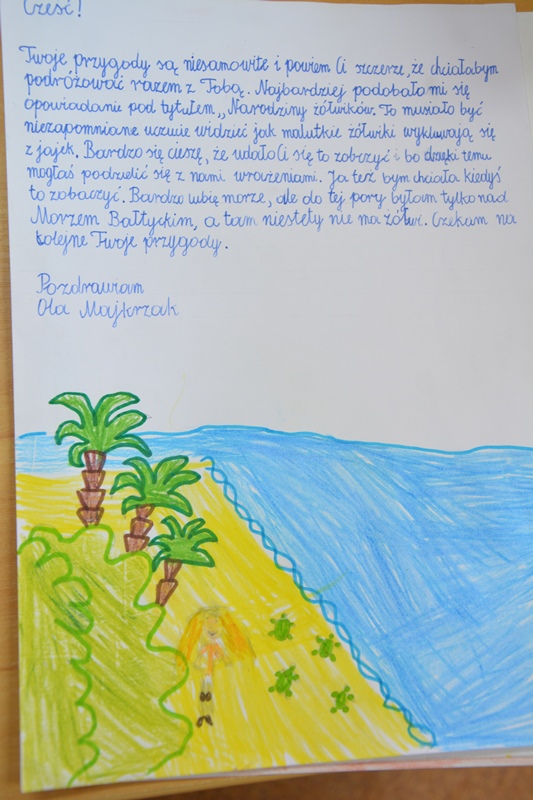 Cześć!
Twoje przygody są niesamowite i powiem Ci szczerze, że chciałabym
podróżować razem z Tobą. Najbardziej podobało mi się
opowiadanie pod tytułem „Narodziny żółwików. To musiało być
niezapomniane uczucie widzieć jak malutkie żółwiki wykluwają się
z jajek. Bardzo się cieszę, że udało Ci się to zobczyć i bo dzięki temu
mogłaś podzielić się z nami wrażeniami. Ja też bym chciała kiedyś
to zobaczyć. Bardzo lubię morze, ale do tej pory byłam tylko nad
Morzem Bałtyckim, a tam niestety nie ma żółwi. Czekam na
kolejne Twoje przygody.
Pozdrawiam
Ola Majkrzak